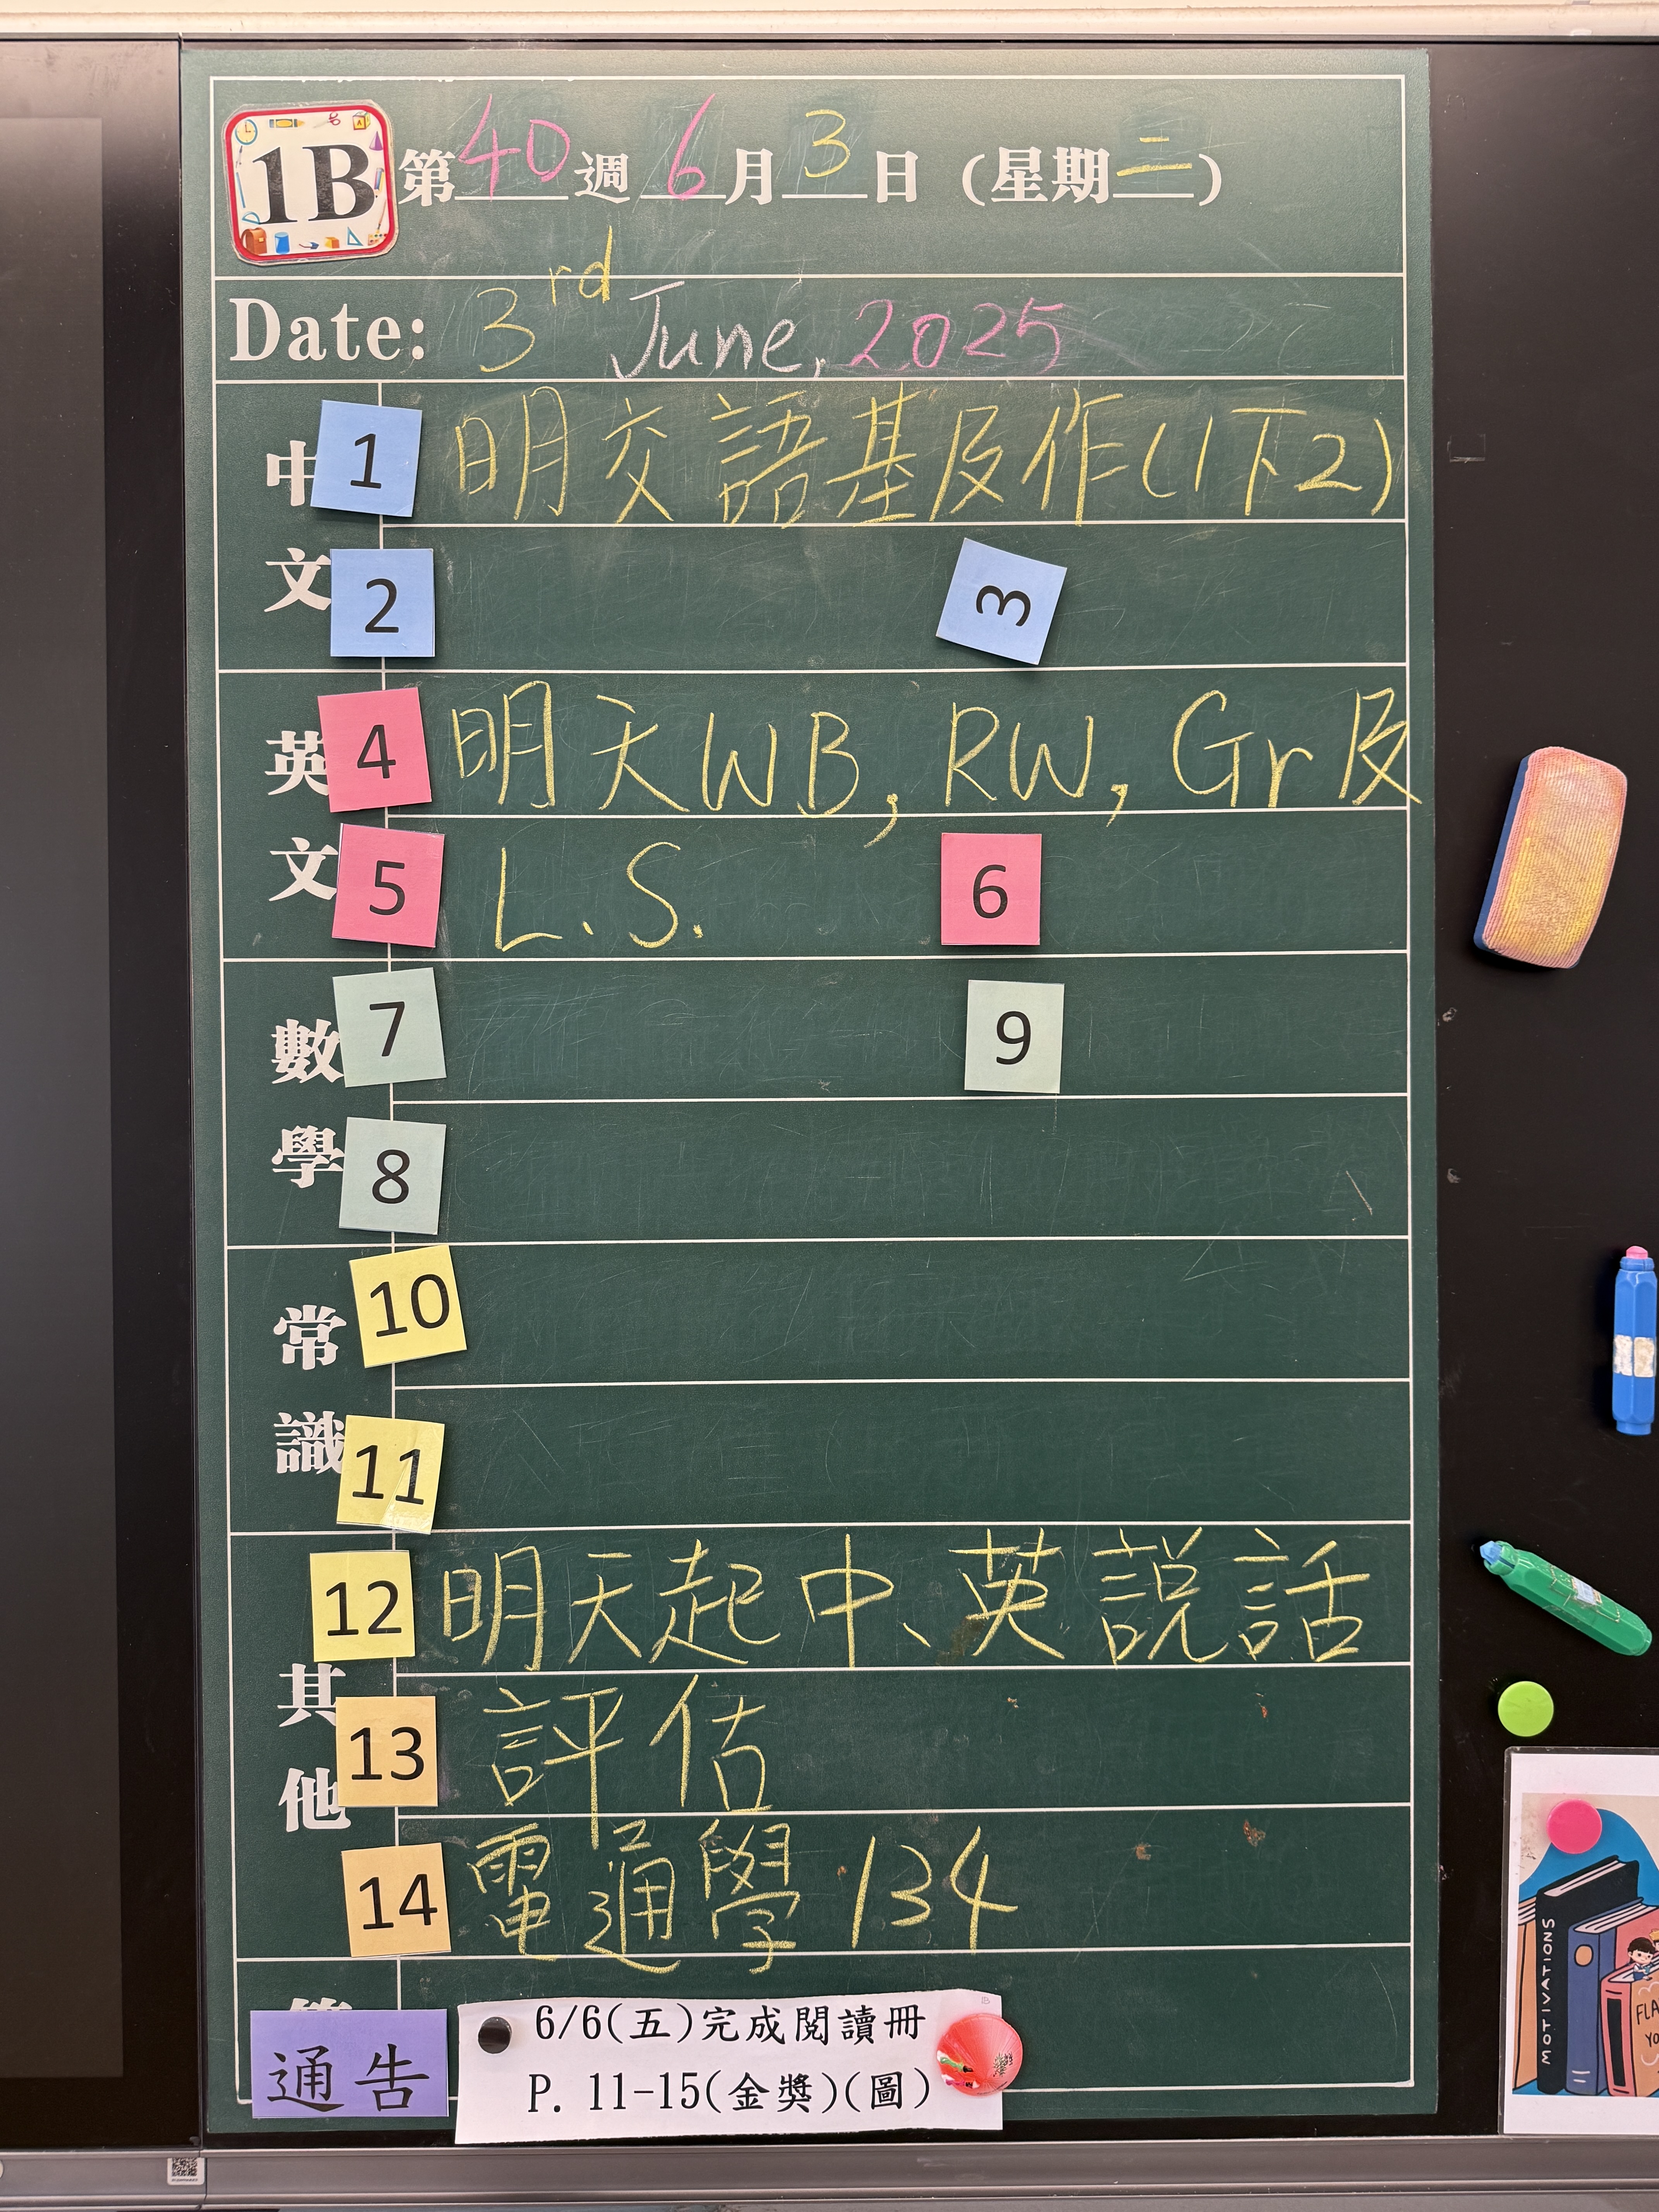 1B 第40週 6月3日 (星期二)
Date: 3rd June, 2025
中文
1 明交語基及作(1下2)
2 3
英文
4 明天WB, RW, Gr及
5 L.S. 6
數學
7 9
8
常識
10
11
其他
12 明天起中、英說話
13 評估
14 電通學134
通告
6/6(五)完成閱讀冊
P. 11-15(金獎)(圖)
MOTIVATIONS